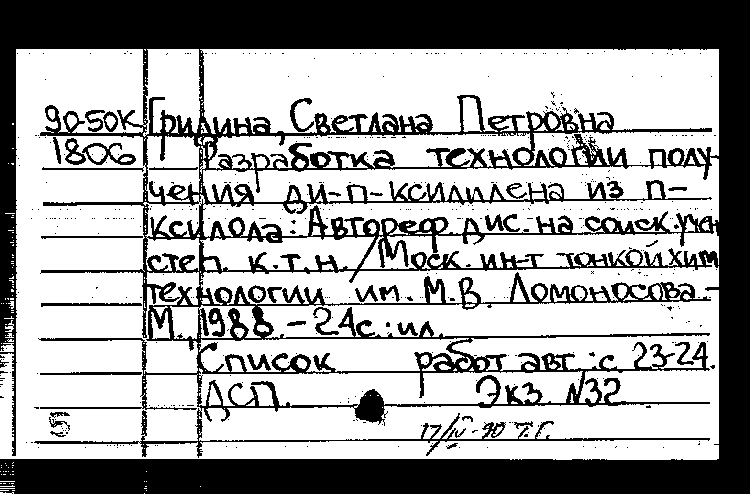 90-50К Грилина, Светлана Петровна
1806 Разработка технологии полу-
чения ди-п-ксилилена из п-
ксилола: Автореф. дис. на соиск. учен
степ. к.т.н. / Моск. ин-т тонкой хим
технологии им. М.В. Ломоносова.-
М., 1988. - 24с.: ил.
Список работ авт.: с. 23-24.
ДСП. Экз. N32
5
17/IV-90 Т.Г.